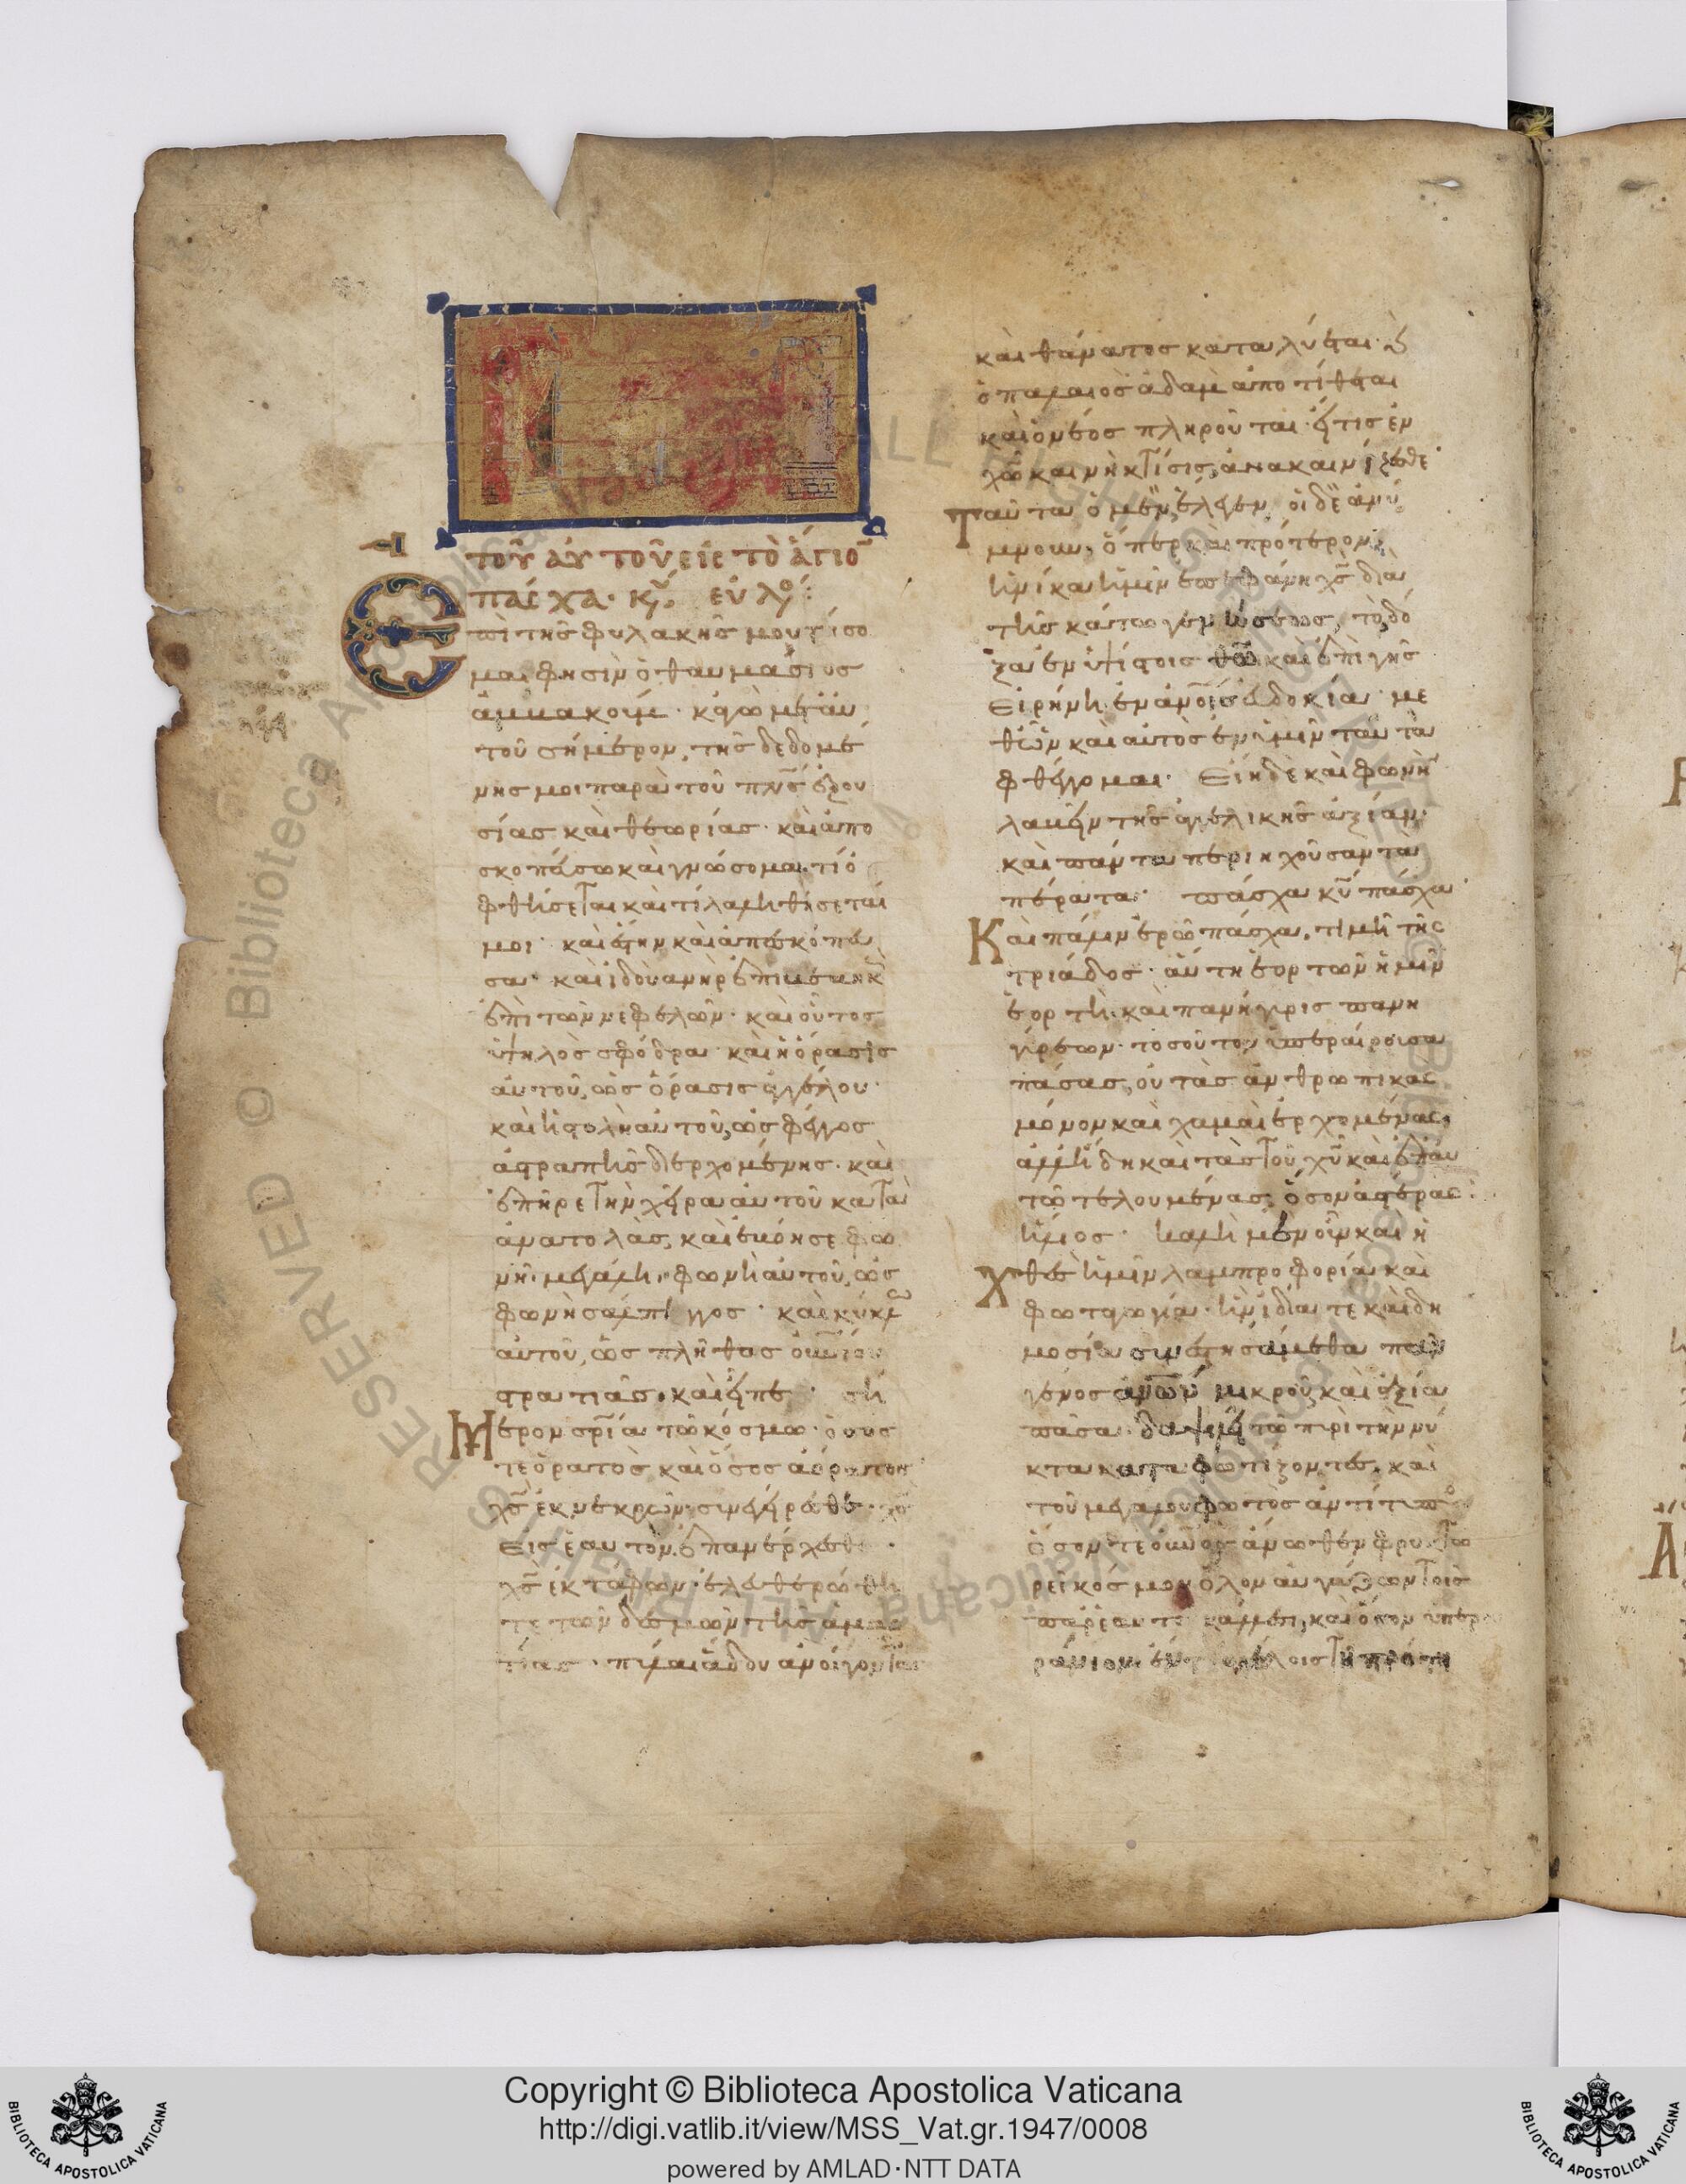 τοῦ αὐτοῦ εἰς τὸ ἅγιον
πάσχα· κε εὐλο:
Ἐπὶ τῆς φυλακῆς μου στήσο
μαι φησὶν ὁ θαυμάσιος
ἀμβακούμ· κἀγὼ μετ' αὐ
τοῦ σήμερον, τῆς δεδομέ
νης μοι παρὰ τοῦ πνς ἐξου
σίας καὶ θεωρίας· καὶ ἀπο
σκοπεύσω καὶ γνώσομαι τί ὀ
φθήσεται καὶ τί λαληθήσεταί
μοι· καὶ ἔστην καὶ ἀπεσκόπευ
σα· καὶ ἰδοὺ ἀνὴρ ἐπιβεβηκὼς
ἐπὶ τῶν νεφελῶν· καὶ οὗτος
ὑψηλὸς σφόδρα· καὶ ἡ ὅρασις
αὐτοῦ, ὡς ὅρασις ἀγγέλου·
καὶ ἡ στολὴ αὐτοῦ, ὡς φέγγος
ἀστραπῆς διερχομένης· καὶ
ἐπῆρε τὴν χεῖρα αὐτοῦ κατὰ
ἀνατολὰς, καὶ ἐβόησε φω
νῇ μεγάλῃ· φωνὴ αὐτοῦ, ὡς
φωνὴ σάλπιγγος· καὶ κύκλῳ
αὐτοῦ, ὡς πλῆθος οὐνίου
στρατιᾶς· καὶ εἶπε· σή
μερον σρία τῷ κόσμῳ· ὅσος
τε ὁρατὸς καὶ ὅσος ἀόρατος·
χς ἐκ νεκρῶν, συνεγείρεσθε· χς
εἰς ἑαυτὸν, ἐπανέρχεσθε·
χς ἐκ τάφων, ἐλευθερώθη
τε τῶν δεσμῶν τῆς ἁμαρ
τίας· πύλαι ᾅδου ἀνοίγονται
καὶ θάνατος καταλύεται· καὶ
ὁ παλαιὸς ἀδὰμ ἀποτίθεται
καὶ ὁ νέος πληροῦται· εἴ τις ἐν
χῶ καινὴ κτίσις, ἀνακαινίζεσθε·
Ταῦτα ὁ μὲν ἔλεγεν, οἱ δὲ ἀνύ
μνουν, ὅπερ καὶ πρότερον,
ἡνίκα ἡμῖν ἐπεφάνη χς διὰ
τῆς κάτω γεννήσεως, τὸ δό
ξα ἐν ὑψίστοις θῶ καὶ ἐπὶ γῆς
εἰρήνη ἐν ἀνοῖς εὐδοκία· με
θ' ὧν καὶ αὐτὸς ἐν ὑμῖν ταῦτα
φθέγγομαι· εἴη δὲ καὶ φωνὴν
λαβεῖν τῆς ἀγγελικῆς ἀξίαν·
καὶ πάντα περιηχοῦσαν τὰ
πέρατα· πάσχα κυ πάσχα·
Καὶ πάλιν ἐρῶ πάσχα, τιμῇ τῆς
τριάδος· αὕτη ἑορτῶν ἡμῖν
ἑορτὴ· καὶ πανήγυρις πανη
γύρεων· τοσοῦτον ὑπεραίρουσα
πάσας, οὐ τὰς ἀνθρωπικὰς
μόνον καὶ χαμαὶ ἐρχομένας,
ἀλλ' ἤδη καὶ τὰς τοῦ χυ καὶ ἐπ' αὐ
τῷ τελουμένας, ὅσον ἀστέρας
ἥλιος· καλὴ μὲν οὖν καὶ ἡ
χθὲς ἡμῖν λαμπροφορία καὶ
φωταγωγία· ἣν ἰδίᾳ τε καὶ δη
μοσίᾳ συνεστησάμεθα πᾶν
γένος ἀνων μικροῦ καὶ ἀξία
πᾶσα· δαψιλεῖ τῷ πυρὶ τὴν νύ
κτα καταφωτίζοντες, καὶ
τοῦ μεγάλου φωτὸς ἀντίτυπος
ὅσον τε οὐνος ἄνωθεν φρυκτω
ρεῖ κόσμον ὅλον αὐγάζων τοῖς
παρ' ἑαυτοῦ κάλλεσι, καὶ ὅσον ὑπερου
ράνιον ἐν ἀγγέλοις τῇ πρώτῃ
Copyright © Biblioteca Apostolica Vaticana
http://digi.vatlib.it/view/MSS_Vat.gr.1947/0008
powered by AMLAD·NTT DATA